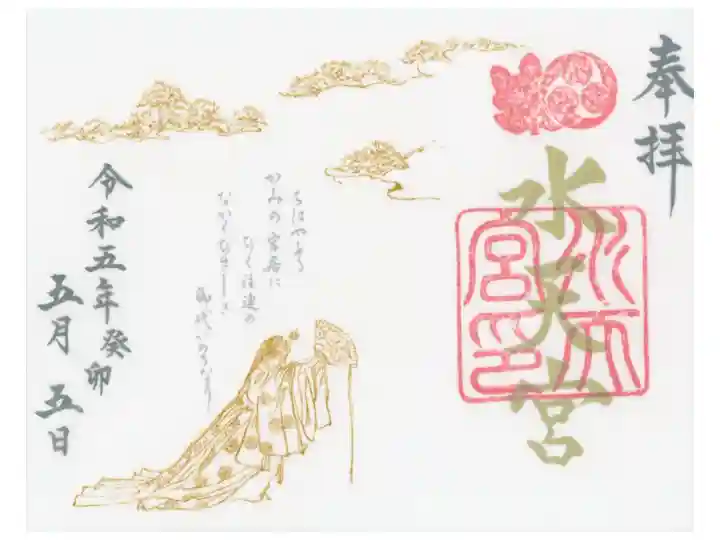 奉拝
水天宮
水天宮印
ちはやふる
かみの宮居に
ひく注連の
なかくひさしき
令和五年癸卯
五月五日